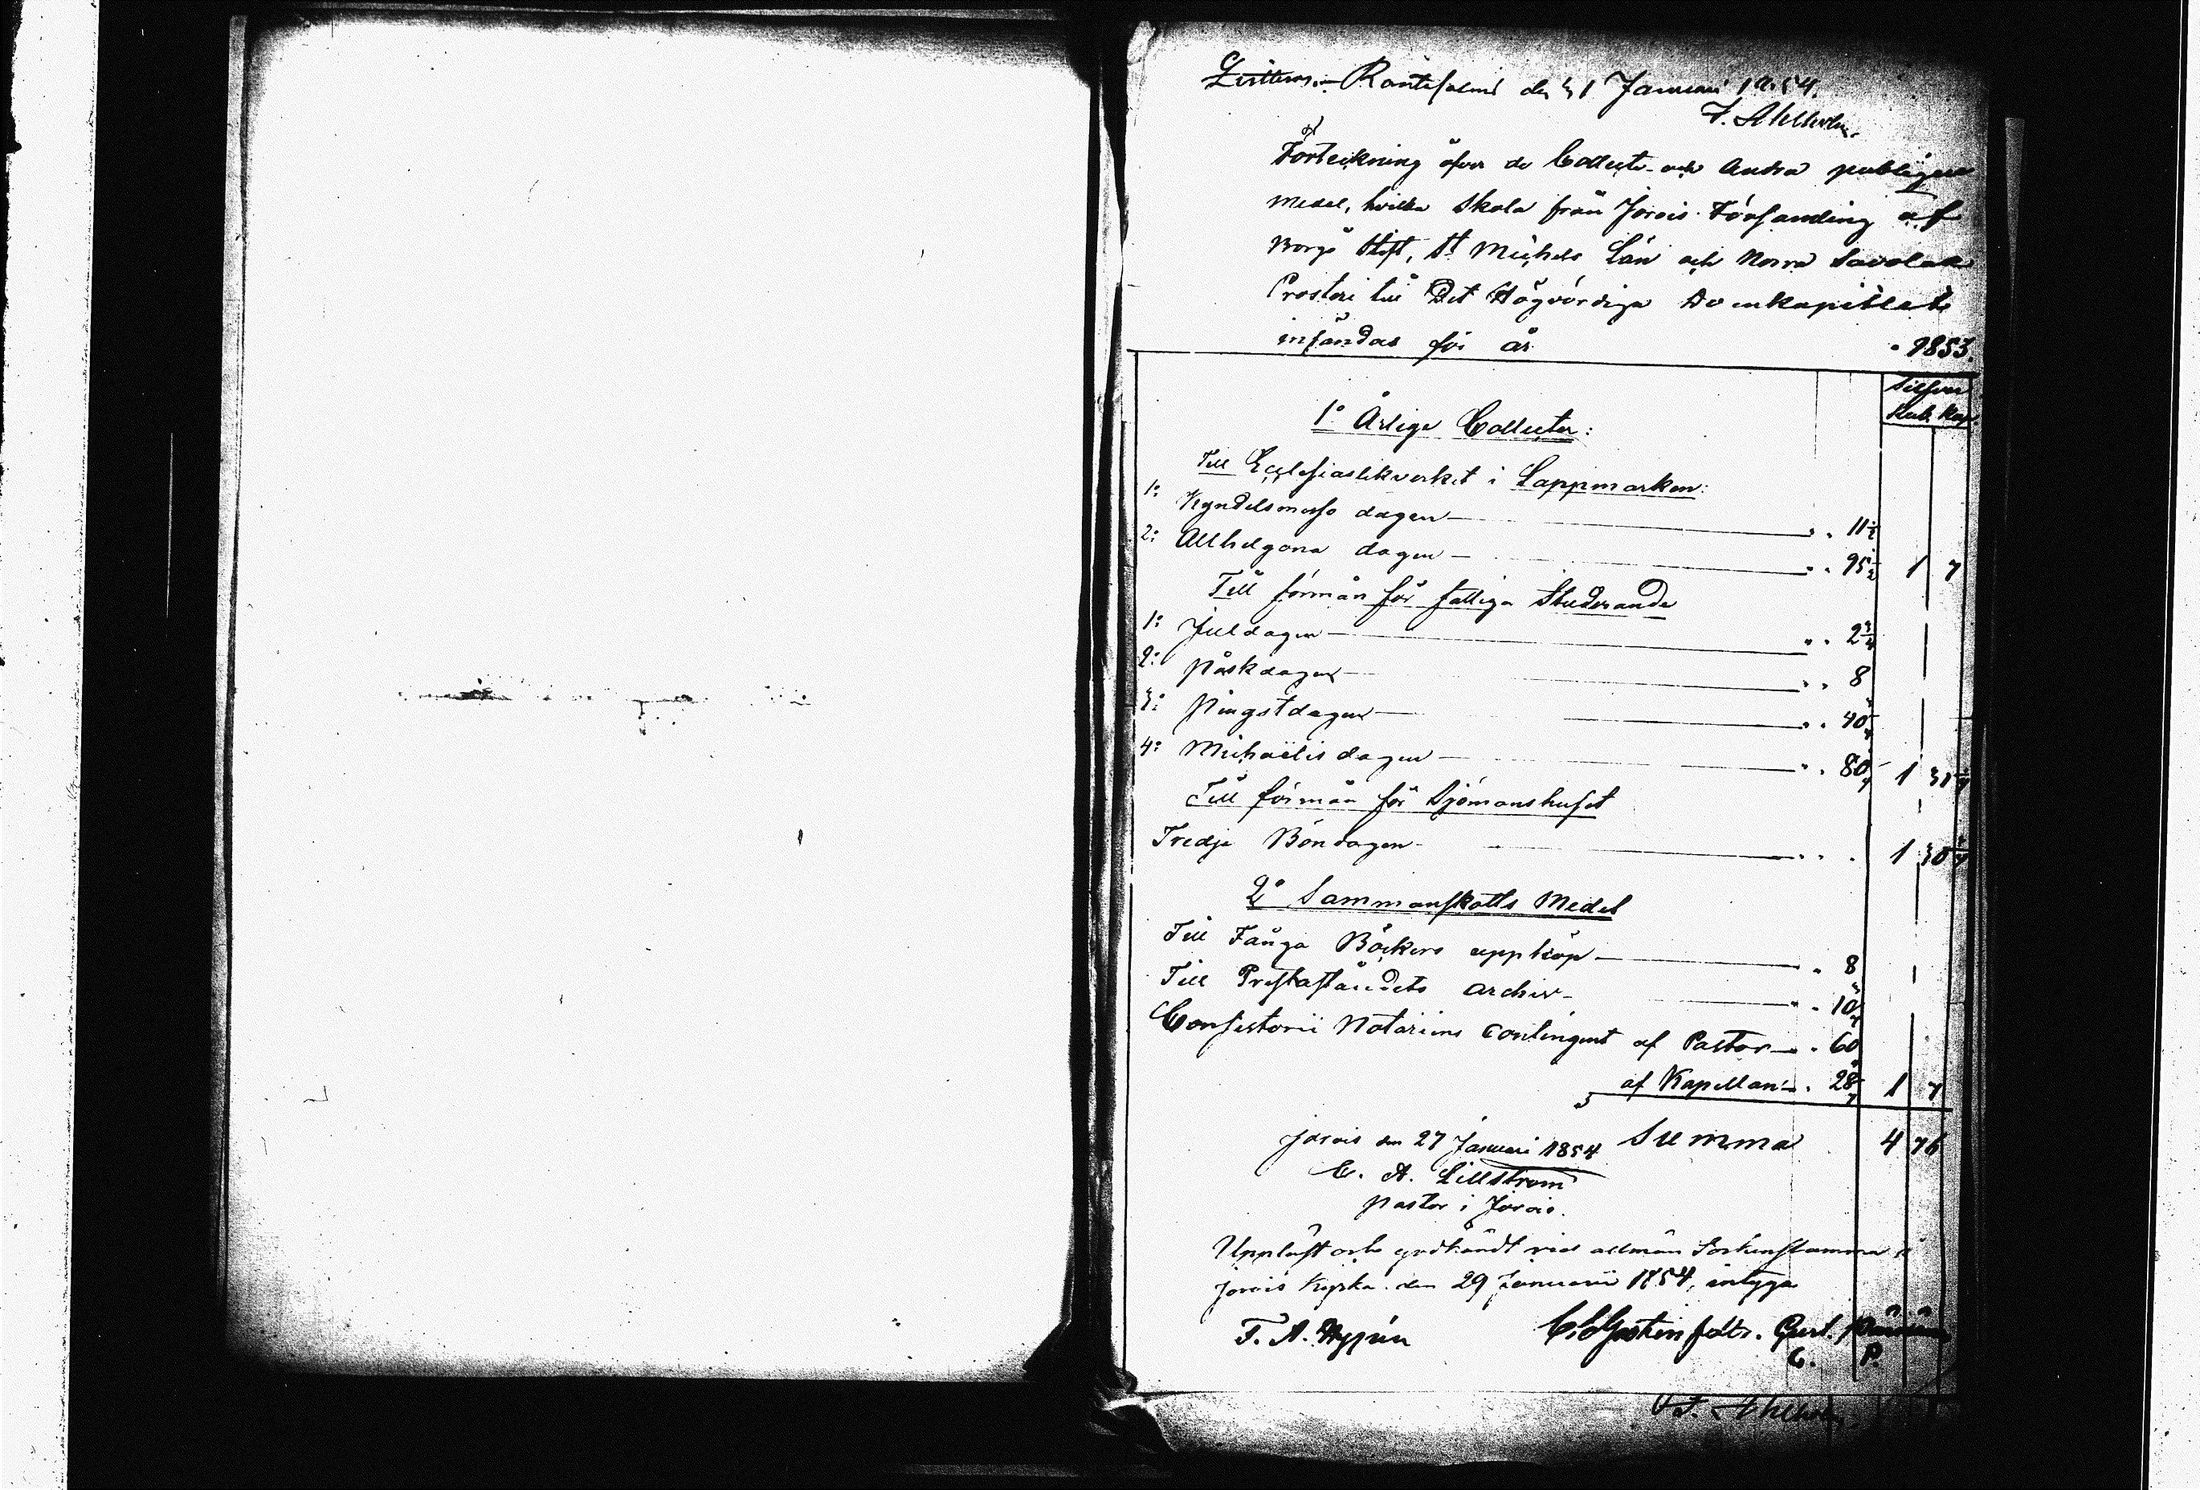 Rantasalmi den 31 Januari 1854.
Förteckning öfver de Collect- och Andra publique
medel, hvilka skola från Jorois Församling af
Borgå Stift, St Michels Län och Norra Savolax
Prosteri till Det Högvördiga Domkapitlet
insändas för år 1853.
Silfver
Rub. Kop.
1° Årliga Collecter:
Till Ecclesiastikverket i Lappmarken:
1: Kyndelsmesso dagen — " " 11½
2: Allhelgona dagen — " " 95½ 1 7
Till förmån för fattiga Studerande
1: Juldagen — " " 2¾
2: Påskdagen — " " 8
3: Pingstdagen — " " 40
4: Michaëlis dagen — " " 80 1 31
Till förmån för Sjömanshuset
Tredje Böndagen — " " " 1 30
2° Sammanskotts Medel
Till Fånga Böckers uppköp — " 8
Till Prestaståndets archiv — " 10
Consistorii Notariens contingent af Pastor — " 60
af Kapellan — " 28 1 7
Summa 4 76
Jorois den 27 Januari 1854
C. A. Lillström
Pastor i Jorois.
Uppläst och godkändt vid allmän Sockenstämma i
Jorois Kyrka den 29 Januarii 1854, intyga